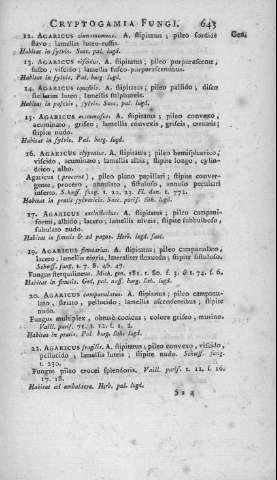 CRYPTOGAMIA FUNGI. 643
12. AGARICUS cinnamomeus. A. stipitatus; pileo sordide Gen.
flavo; lamellis luteo-ruffis.
Habitat in sylvis. Suec. pal. lugd.
13. AGARICUS viscidus. A. stipitatus; pileo purpurascente,
fusco, viscido; lamellis fusco-purpurascentibus.
Habitat in sylvis. Pal. burg. lugd.
14. AGARICUS equestris. A. stipitatus; pileo pallido, disco
stellatim luteo; lamellis sulphureis.
Habitat in pascuis, sylvis. Suec. pal. lugd.
15. AGARICUS mammosus. A. stipitatus; pileo convexo,
acuminato, griseo; lamellis convexis, griseis, crenatis;
stipite nudo.
Habitat in sylvis. Pal. burg. lugd.
16. AGARICUS clypeatus. A. stipitatus; pileo hemisphærico,
viscido, acuminato; lamellis albis; stipite longo, cylin-
drico, albo.
Agaricus (procerus), pileo plano papillari; stipite conver-
gente, procero, annulato, fistuloso, annulo peculiari
infero. Schæff. fung. t. 22, 23. fl. dan. t. 772.
Habitat in pratis sylvaticis. Suec. paris. lith. lugd.
17. AGARICUS extinctorius. A. stipitatus; pileo campani-
formi, albido, lacero; lamellis niveis; stipite subbulboso,
subulato nudo.
Habitat in fimetis & ad pagos. Herb. lugd. suec.
19. AGARICUS fimetarius. A. stipitatus; pileo campanulato,
lacero; lamellis nigris, lateraliter flexuosis; stipite fistuloso.
Schæff. fung. t. 7. 8. 46. 47.
Fungus sterquilineus. Mich. gen. 181. t. 80. f. 3. & t. 74. f. 6.
Habitat in fimetis. lugd.
20. AGARICUS campanulatus. A. stipitatus; pileo campanu-
lato, striato, pellucido; lamellis ascendentibus; stipite
nudo.
Fungus multiplex, obtusè conicus; colore griseo, murino.
Vaill. paris. 71. t. 12. f. 1. 2.
Habitat in pratis. Pal. burg. lith. lugd.
22. AGARICUS fragilis. A. stipitatus; pileo convexo, viscido,
pellucido; lamellis luteis; stipite nudo. Schæff. fung.
t. 230.
Fungus pileo crocei splendoris. Vaill. paris. t. 11. f. 16.
17. 18.
Habitat ad ambulacra. Herb. pal. lugd.